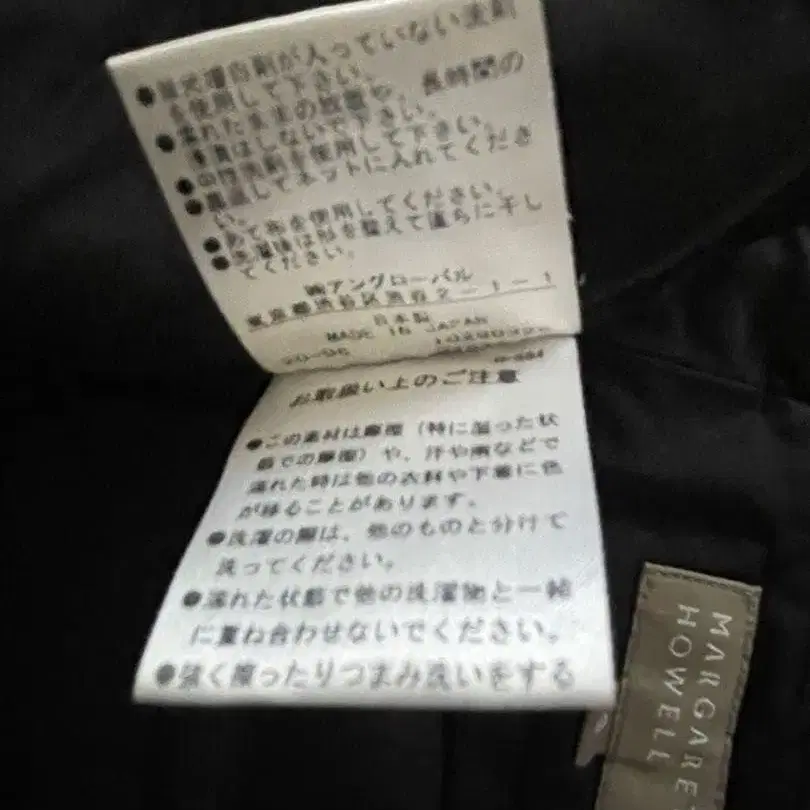 ●蛍光増白剤が入っていない洗剤
を使用して下さい。
●濡れたままの放置や、長時間の
はしないで下さい。
●中性洗剤を使用して下さい。
してネットに入れてくださ
い。
●あて布を使用してください。
●洗濯後は形を整えて平らに干し
てください。
㈱アングローバル
東京都渋谷区渋谷2-1-1
日本製
MADE IN JAPAN
お取扱い上のご注意
●この素材は摩擦（特に湿った状
態での摩擦）や、汗や雨などで
濡れた時は他の衣料や下着に色
が移ることがあります。
●洗濯の際は、他のものと分けて
洗ってください。
●濡れた状態で他の洗濯物と一緒
に重ね合わせないでください。
●強く擦ったりつまみ洗いをする
MARGARET
HOWELL